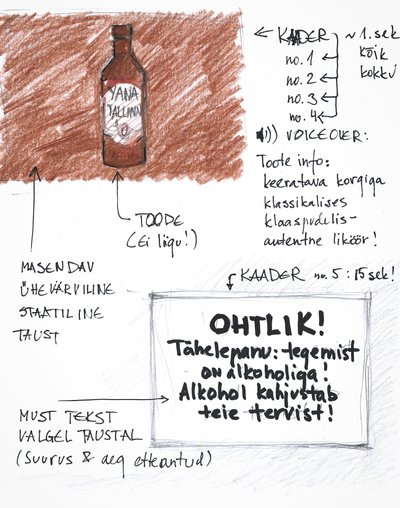 KAADER
no. 1
no. 2
no. 3
no. 4
~ 1. sek
KÕIK
KOKKU
VANA
TALLINN
VOICEOVER:
Toote info:
keeratava korgiga
klassikalises
klaaspudelis-
autentne liköör!
TOODE
(Ei liigu!)
MASENDAV
ÜHEVÄRVILINE
STAATILINE
TAUST
KAADER no. 5: 15 sek!
OHTLIK!
Tähelepanu: tegemist
on alkoholiga!
Alkohol kahjustab
teie tervist!
MUST TEKST
VALGEL TAUSTAL
(Suurus & aeg etteantud)